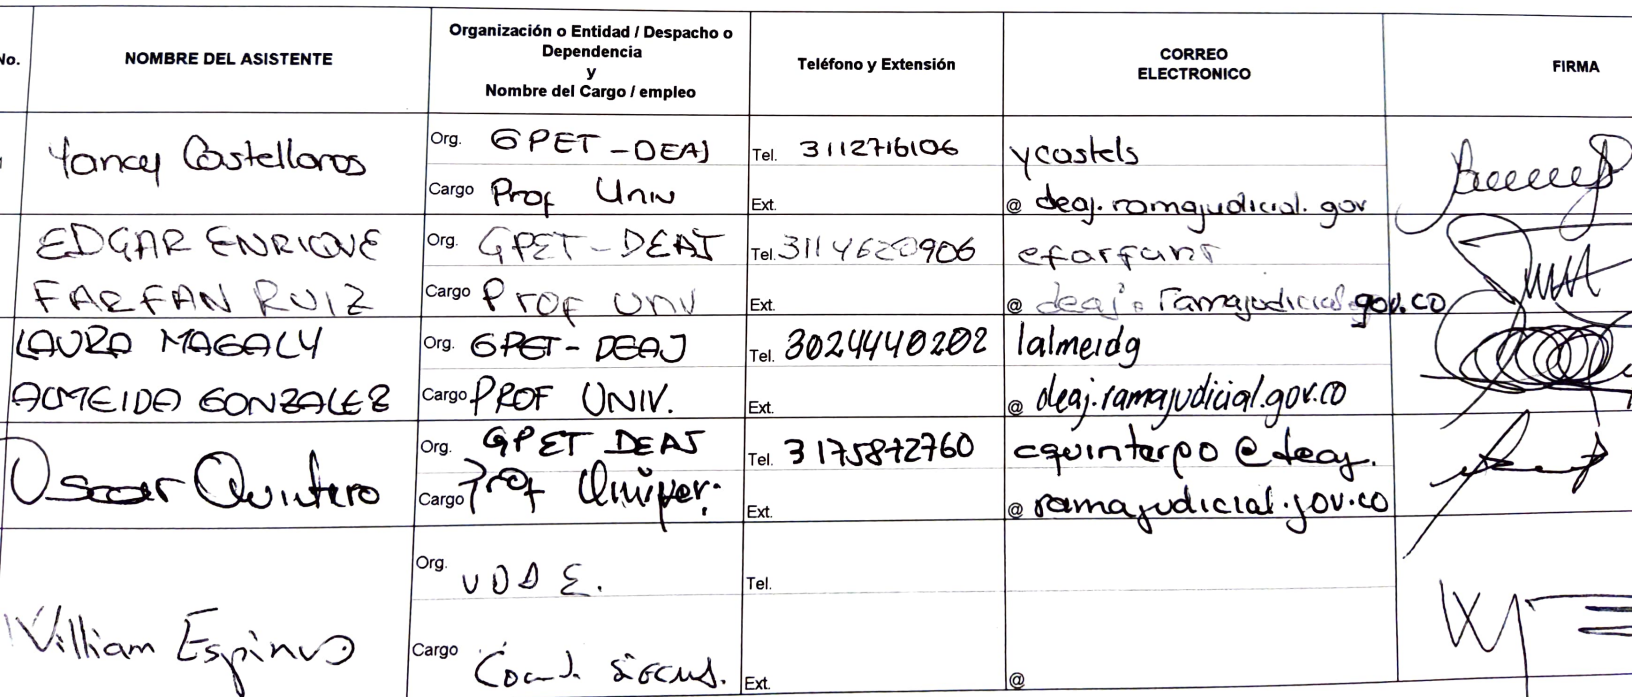 No. NOMBRE DEL ASISTENTE Organización o Entidad / Despacho o Dependencia y Nombre del Cargo / empleo Teléfono y Extensión CORREO ELECTRONICO FIRMA
Yancy Castellanos
Org. GPET - DEAJ
Cargo Prof Univ
Tel. 3112716106
Ext.
ycastels
@ deaj.ramajudicial.gov
EDGAR ENRIQUE
FARFAN RUIZ
Org. GPET - DEAJ
Cargo Prof Univ
Tel. 3114620906
Ext.
efarfanr
@ deaj.ramajudicial.gov.co
LAURA MAGALY
ALMEIDA GONZALEZ
Org. GPET - DEAJ
Cargo PROF UNIV.
Tel. 3024440202
Ext.
lalmeidg
@ deaj.ramajudicial.gov.co
Oscar Quintero
Org. GPET DEAJ
Cargo Prof Univer.
Tel. 3175872760
Ext.
cquinterpo @deaj.
@ ramajudicial.gov.co
William Espinos
Org.
Cargo
Tel.
Ext.
@